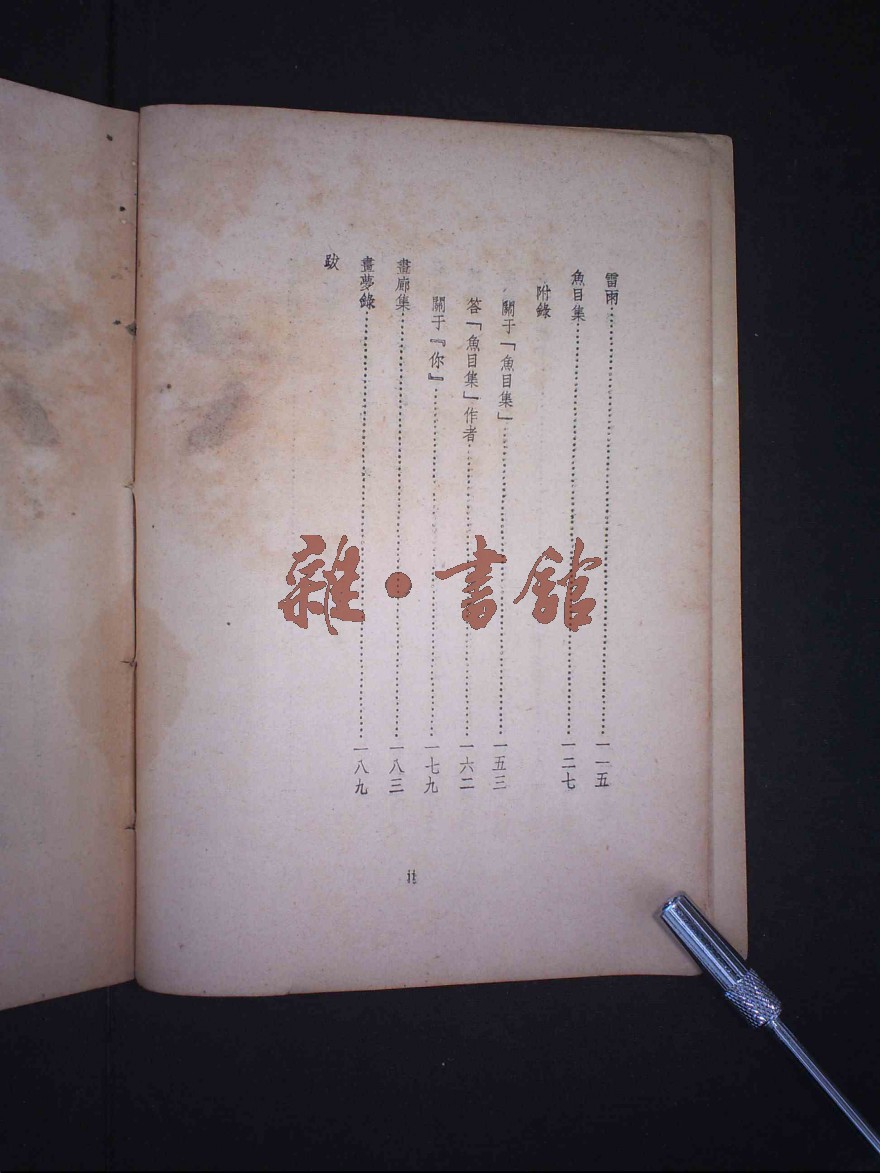 雷雨……一一五
魚目集……一二七
附錄
關于「魚目集」……一五三
答「魚目集」作者……一六二
關于『你』……一七九
畫廊集……一八三
畫夢錄……一八九
跋
雜·書館